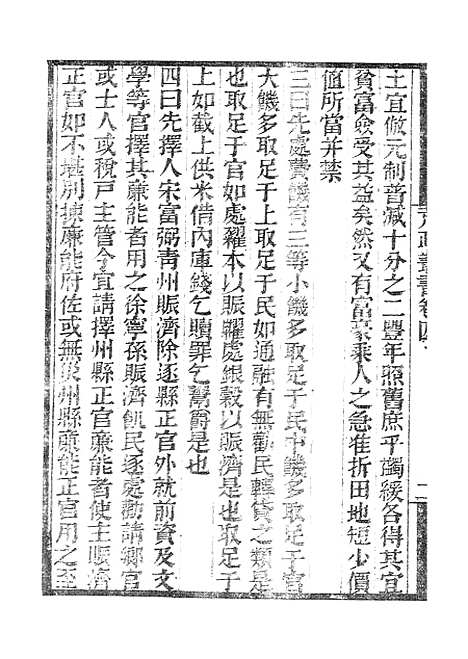 荒政叢書卷四
二
土宜倣元制普減十分之二豐年照舊庶乎蠲綏各得其宜
貧富僉受其益矣然又有富豪乘人之急准折田地短少價
值所當并禁
三曰先處費饑有三等小饑多取足于民中饑多取足于官
大饑多取足于上取足于民如通融有無勸民轉貸之類是
也取足于官如處糴本以賑糶處銀穀以賑濟是也取足于
上如截上供米借內庫錢乞贖罪乞鬻爵是也
四曰先擇人宋富弼青州賑濟除逐縣正官外就前資及文
學等官擇其廉能者用之徐寧孫賑濟飢民逐處勸請鄉官
或士人或稅戶主管今宜請擇州縣正官廉能者使主賑濟
正官如不堪別揀廉能府佐或無災州縣廉能正官用之至